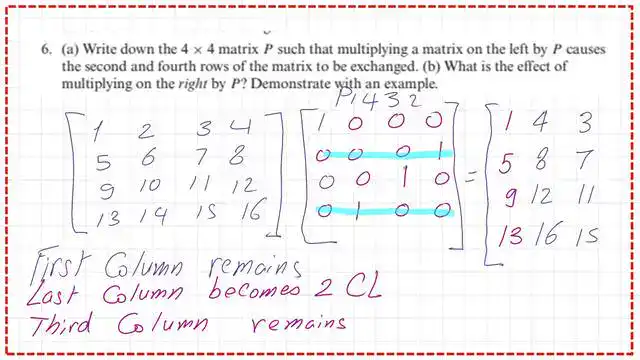 6. (a) Write down the 4 × 4 matrix P such that multiplying a matrix on the left by P causes
the second and fourth rows of the matrix to be exchanged. (b) What is the effect of
multiplying on the right by P? Demonstrate with an example.
P1432
1 2 3 4 1 0 0 0 1 4 3
5 6 7 8 0 0 0 1 = 5 8 7
9 10 11 12 0 0 1 0 9 12 11
13 14 15 16 0 1 0 0 13 16 15
First Column remains
Last Column becomes 2 CL
Third Column remains